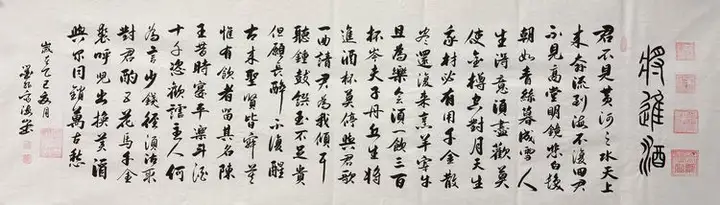 將進酒
君不見黃河之水天上
來奔流到海不復回君
不見高堂明鏡悲白髮
朝如青絲暮成雪人
生得意須盡歡莫
使金樽空對月天生
我材必有用千金散
盡還復來烹羊宰牛
且為樂會須一飲三百
杯岑夫子丹丘生將
進酒杯莫停與君歌
一曲請君為我傾耳
聽鐘鼓饌玉不足貴
但願長醉不復醒
古來聖賢皆寂寞
惟有飲者留其名陳
王昔時宴平樂斗酒
十千恣歡謔主人何
為言少錢徑須沽取
對君酌五花馬千金
裘呼兒出換美酒
與爾同銷萬古愁
歲在乙巳月